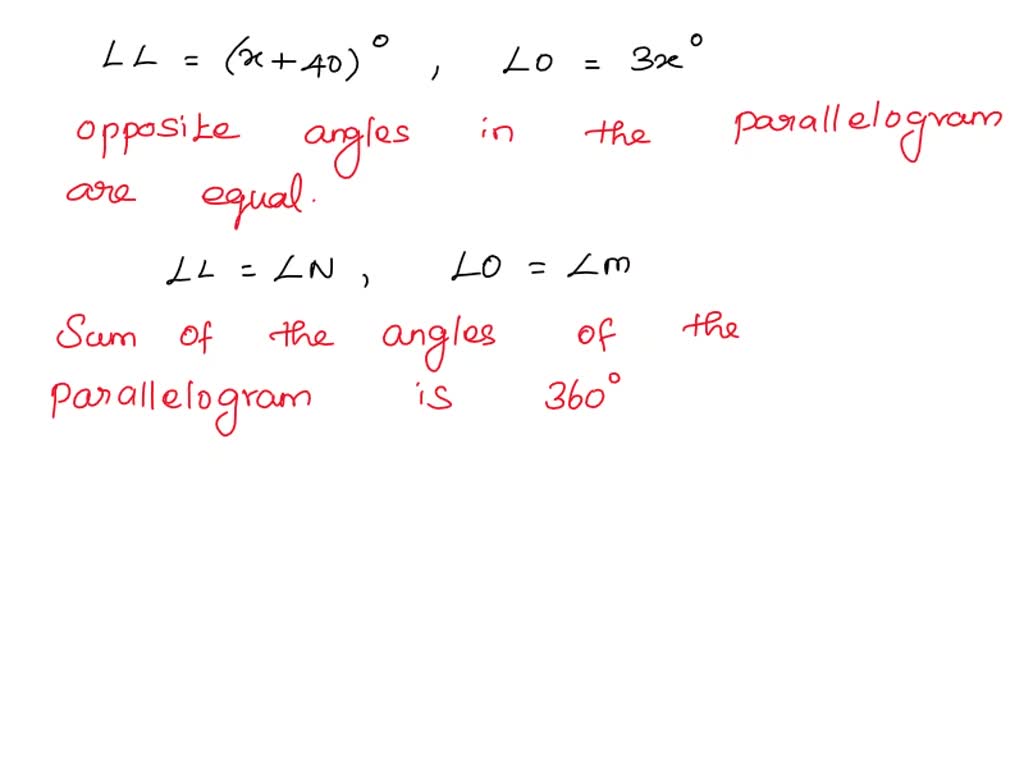 ∠L = (x+40)° , ∠O = 3x°
opposite angles in the parallelogram
are equal.
∠L = ∠N , ∠O = ∠m
Sum of the angles of the
parallelogram is 360°